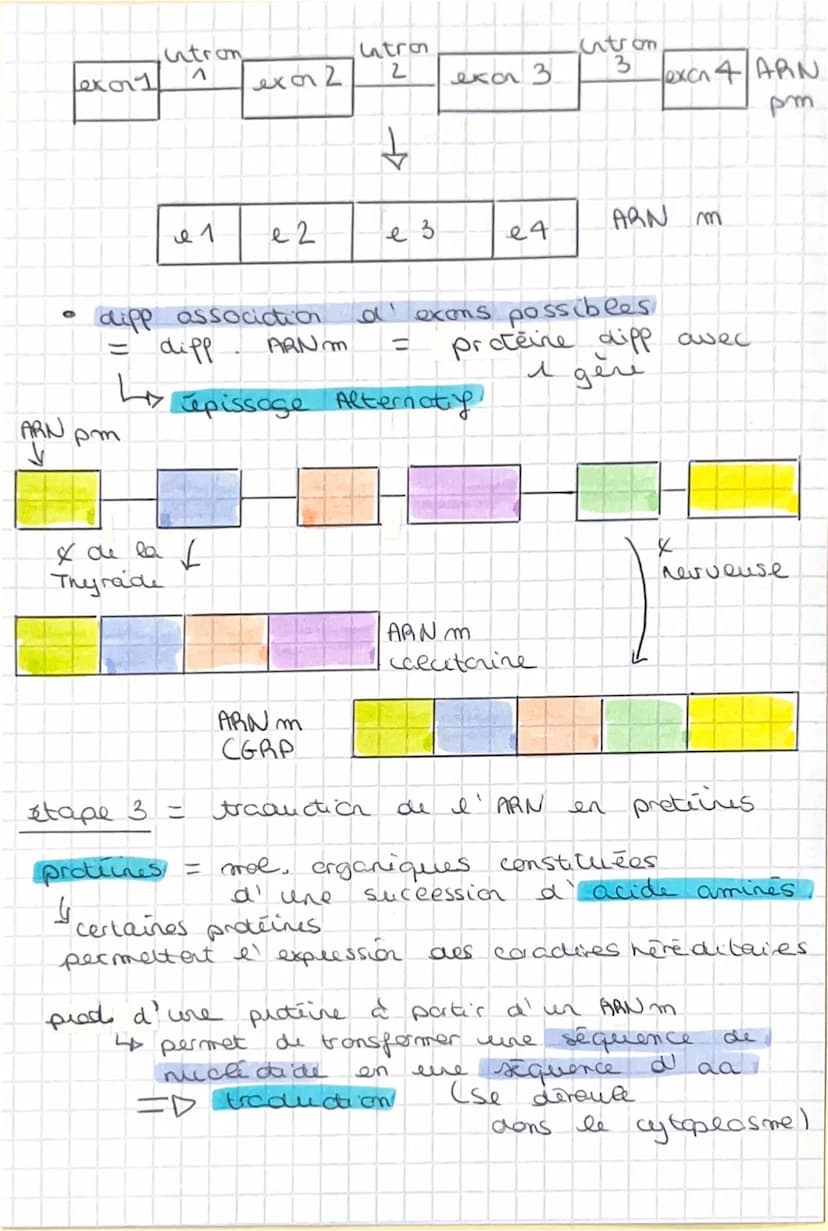 exon 1 intron 1 exon 2 intron 2 exon 3 intron 3 exon 4 ARN pm
e1 e2 e3 e4 ARN m
• diff association d' exons possibles
= diff. ARNm = protéine diff avec
1 gène
↳ épissage Alternatif
ARN pm
de la
Thyroïde
nerveuse
ARN m
calcitonine
ARN m
CGRP
étape 3 = traduction de l'ARN en protéines
protéines = mol. organiques constituées
d'une succession d'acide aminés.
↳ certaines protéines
permettent l'expression des caractères héréditaires
prod. d'une protéine à partir d'un ARN m
↳ permet de transformer une séquence de
nucléotide en une séquence d'aa
=> traduction (se déroule
dans le cytoplasme)